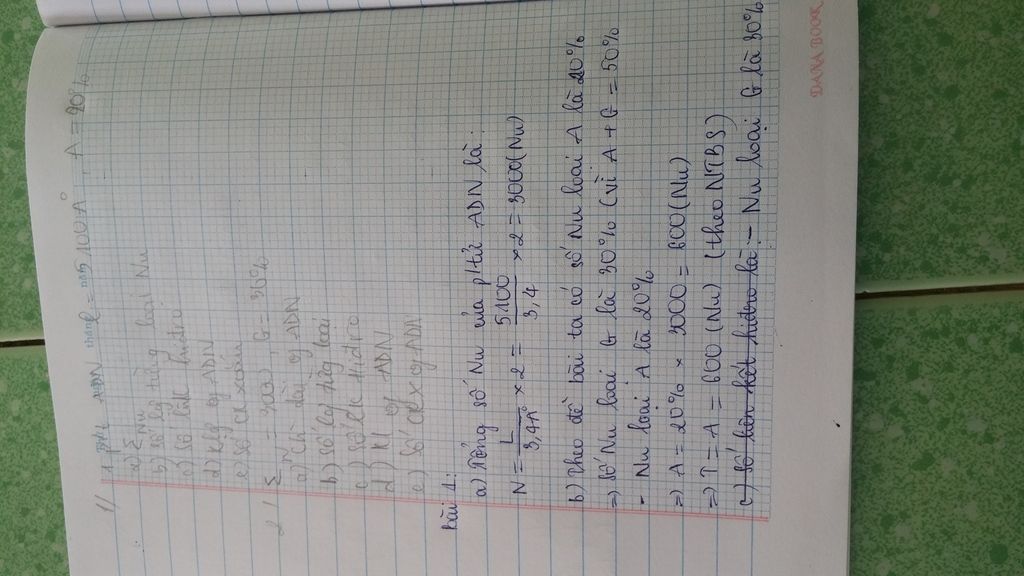 1/ 1 ptử ADN l = 5100A° A = 20%
a) Σ Nu
b) số lg từng loại Nu
c) số lk hidro
d) klg g ADN
e) số ck xoắn
2/ Σ = 3000, G = 30%
a) Ch dài g ADN
b) số lg từng loại
c) số lk hidro
d) kl g ADN
e) số ckx g ADN
bài 1:
a) Tổng số Nu của p/tử ADN là:
N = L/3,4A° × 2 = 5100/3,4 × 2 = 3000 (Nu)
b) Theo đề bài ta có số Nu loại A là 20%
⇒ số Nu loại G là 30% (vì A + G = 50%
- Nu loại A là 20%
⇒ A = 20% × 3000 = 600 (Nu)
⇒ T = A = 600 (Nu) (theo NTBS)
c) số liên kết hidro là: - Nu loại G là 30%
DANA BOOK